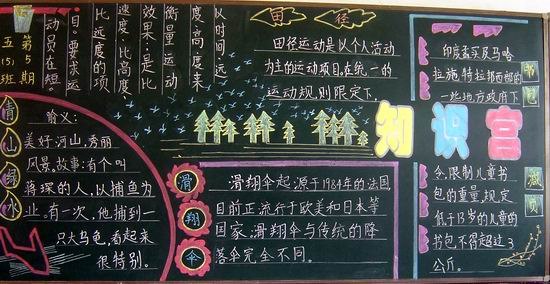 第5期
五(5)班
以时间、远
度高度来
衡量运动
效果:是比
速度、比高度
比远度的项
目。要求运
动员在短
田径
田径运动是以个人活动
为主的运动项目,在统一的
运动规则限定下,
知识宫
青山绿水
喻义:
美好河山,秀丽
风景。故事:有个叫
蒋琛的人,以捕鱼为
止。有一次,他捕到一
只大乌龟,看起来
很特别。
滑翔伞
滑翔伞起源于1984年的法国
目前正流行于欧美和日本等
国家,滑翔伞与传统的降
落伞完全不同。
书包
减负
印度孟买及马哈
拉施特拉邦西部的
一些地方政府下
令,限制儿童书
包的重量,规定
低于13岁的儿童的
书包不得超过3
公斤。